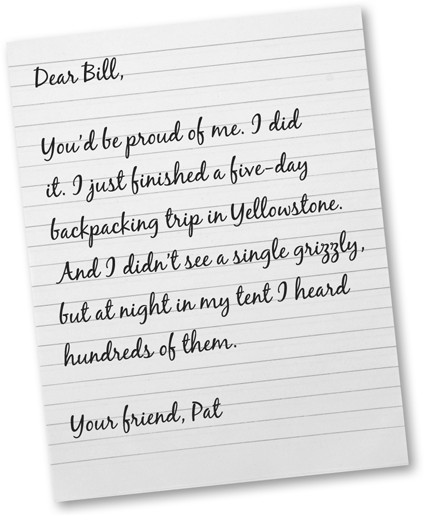 Dear Bill,
You'd be proud of me. I did
it. I just finished a five-day
backpacking trip in Yellowstone.
And I didn't see a single grizzly,
but at night in my tent I heard
hundreds of them.
Your friend, Pat